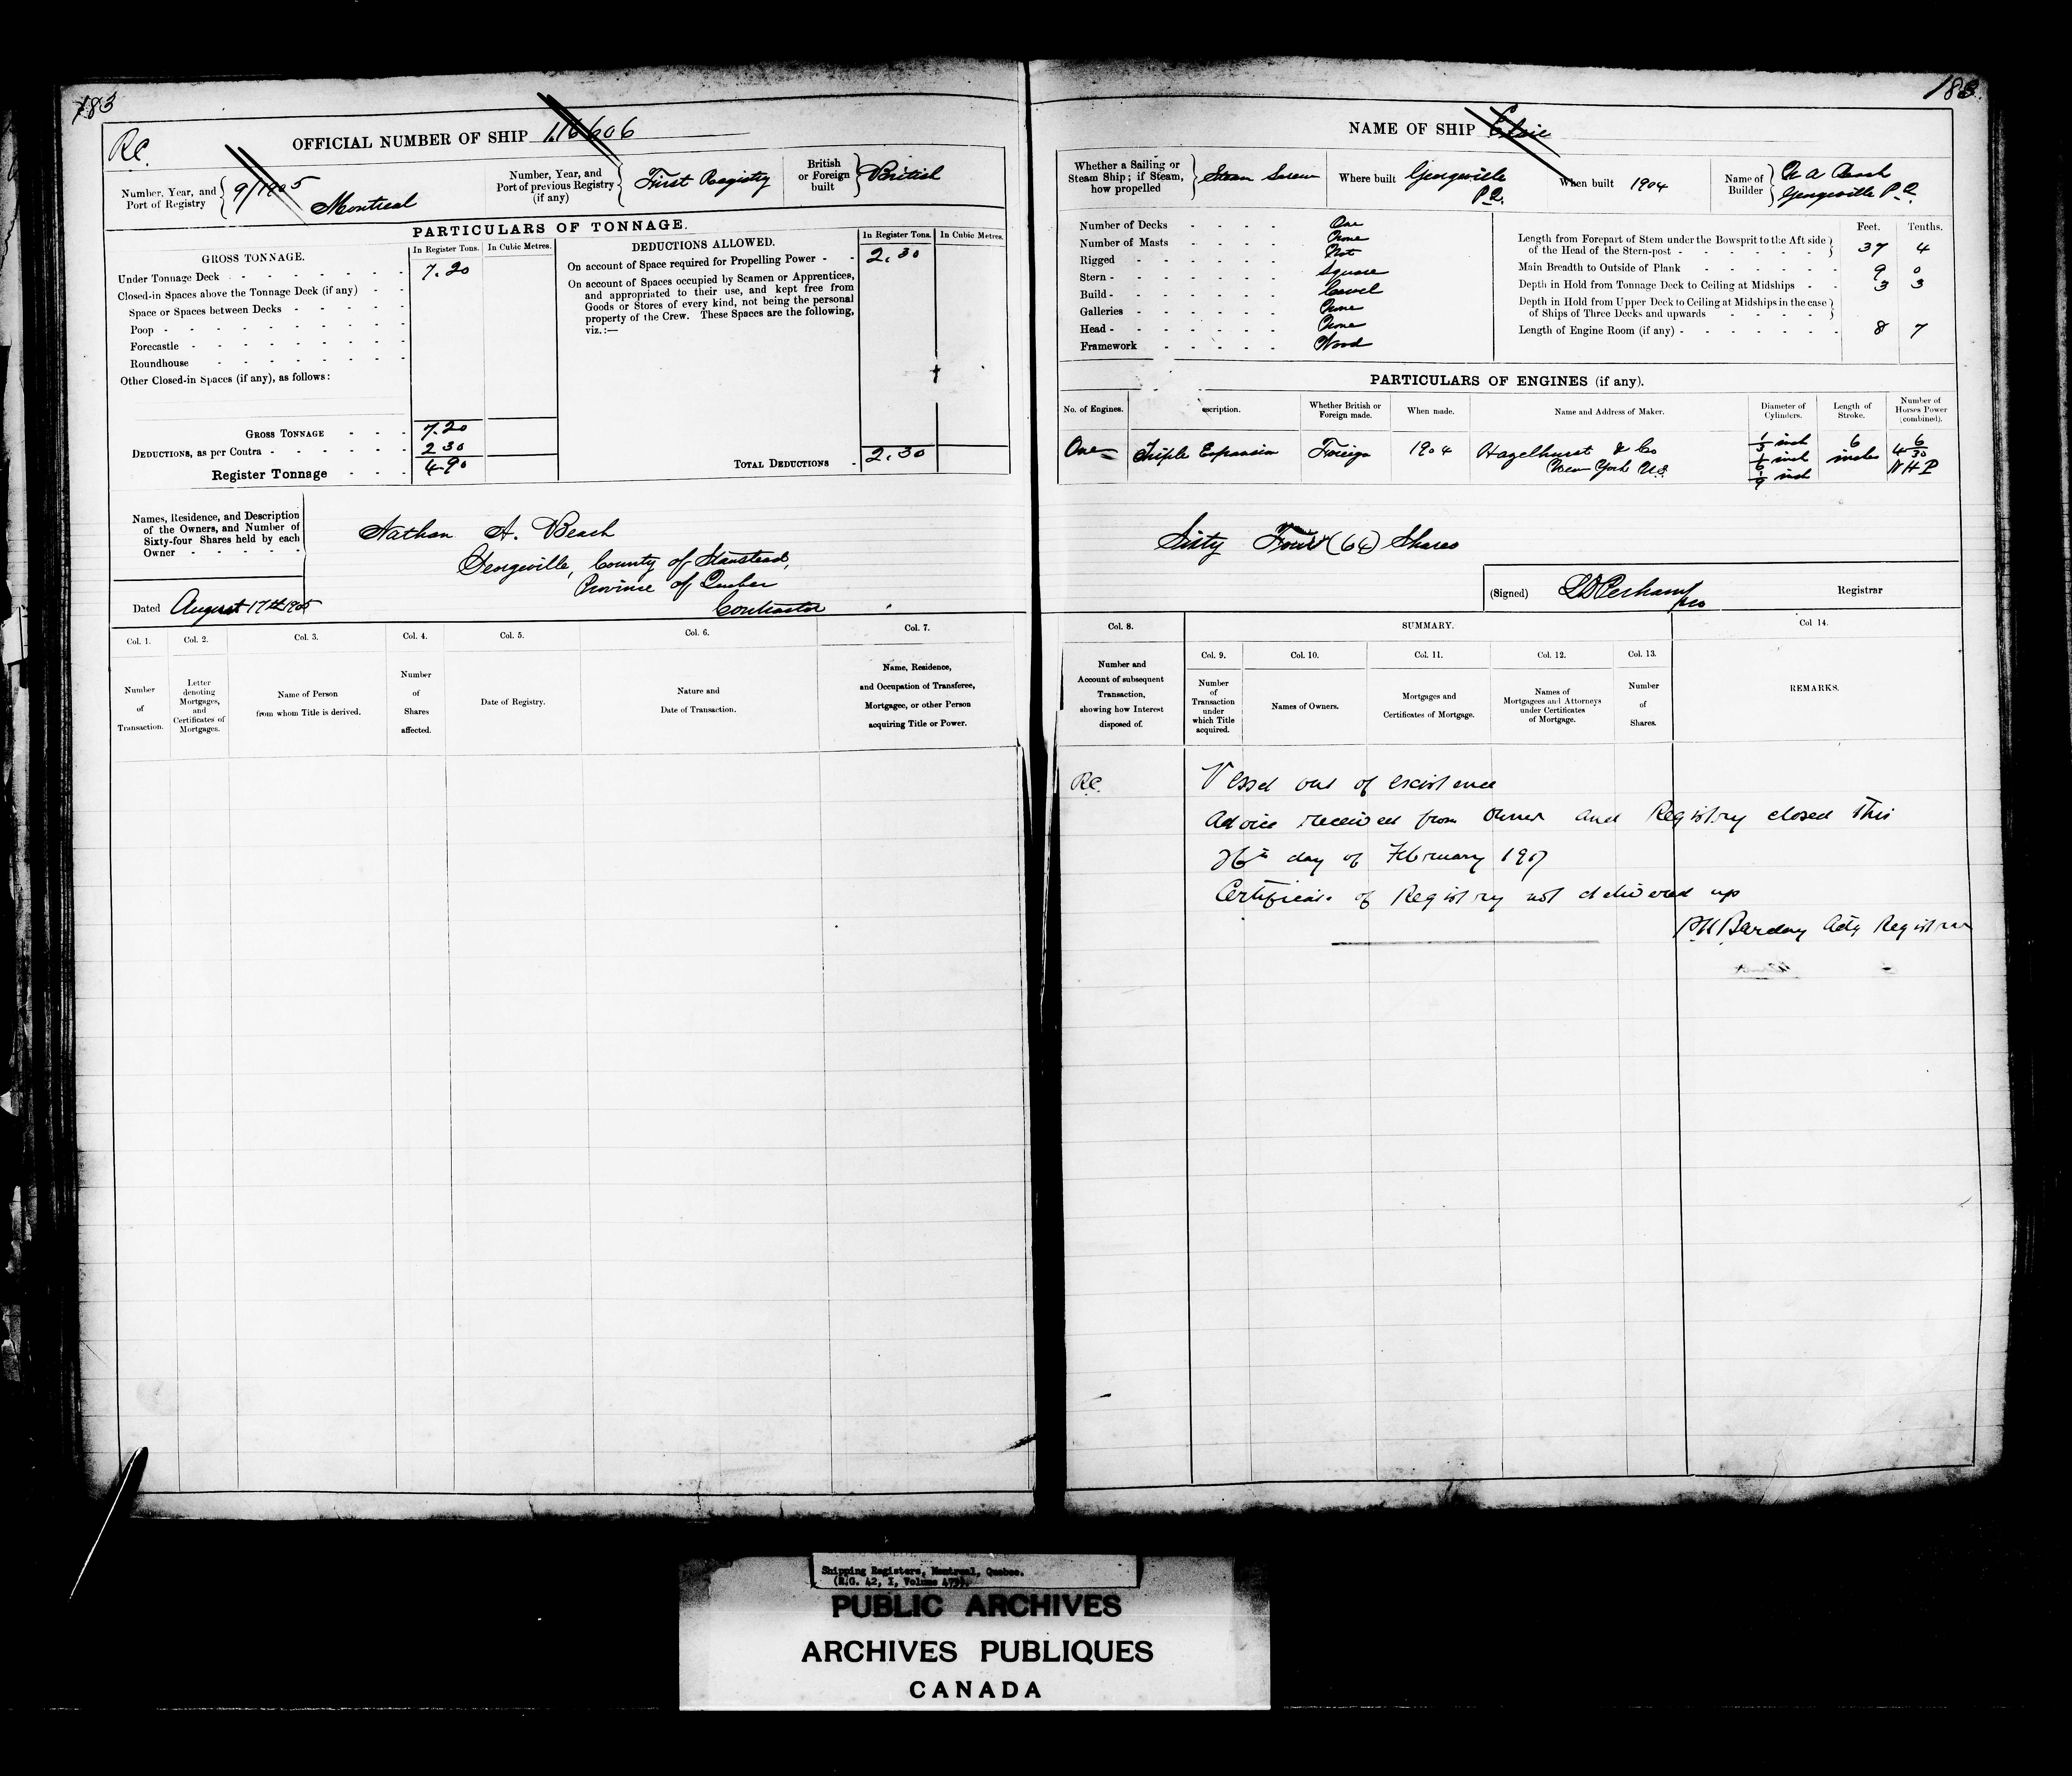 183
183
Rc.
OFFICIAL NUMBER OF SHIP 116606
Number, Year, and Port of Registry 9/1905 Montreal
Number, Year, and Port of previous Registry (if any) First Registry
British or Foreign built British
PARTICULARS OF TONNAGE.
GROSS TONNAGE.
In Register Tons. In Cubic Metres.
Under Tonnage Deck 7.20
Closed-in Spaces above the Tonnage Deck (if any)
Space or Spaces between Decks
Poop
Forecastle
Roundhouse
Other Closed-in Spaces (if any), as follows:
GROSS TONNAGE 7.20
DEDUCTIONS, as per Contra 2 30
Register Tonnage 4.90
DEDUCTIONS ALLOWED.
In Register Tons. In Cubic Metres.
On account of Space required for Propelling Power 2.30
On account of Spaces occupied by Seamen or Apprentices,
and appropriated to their use, and kept free from
Goods or Stores of every kind, not being the personal
property of the Crew. These Spaces are the following,
viz.:—
TOTAL DEDUCTIONS 2.30
Names, Residence, and Description
of the Owners, and Number of
Sixty-four Shares held by each
Owner
Nathan A. Beach
Georgeville, County of Stanstead,
Province of Quebec
Contractor
Dated August 17th 1905
Col. 1. Number of Transaction.
Col. 2. Letter denoting Mortgages, and Certificates of Mortgages.
Col. 3. Name of Person from whom Title is derived.
Col. 4. Number of Shares affected.
Col. 5. Date of Registry.
Col. 6. Nature and Date of Transaction.
Col. 7. Name, Residence, and Occupation of Transferee, Mortgagee, or other Person acquiring Title or Power.
NAME OF SHIP Elsie
Whether a Sailing or Steam Ship; if Steam, how propelled Steam Screw
Where built Georgeville P.Q.
When built 1904
Name of Builder N A Beach Georgeville P.Q.
Number of Decks One
Number of Masts None
Rigged Not
Stern Square
Build Carvel
Galleries None
Head None
Framework Wood
Feet. Tenths.
Length from Forepart of Stem under the Bowsprit to the Aft side
of the Head of the Stern-post 37 4
Main Breadth to Outside of Plank 9 0
Depth in Hold from Tonnage Deck to Ceiling at Midships 3 3
Depth in Hold from Upper Deck to Ceiling at Midships in the case
of Ships of Three Decks and upwards
Length of Engine Room (if any) 8 7
PARTICULARS OF ENGINES (if any).
No. of Engines. One
scription. Triple Expansion
Whether British or Foreign made. Foreign
When made. 1904
Name and Address of Maker. Hazelhurst & Co New York U.S.
Diameter of Cylinders. 1/3 inch 1/6 inch 1/9 inch
Length of Stroke. 6 inches
Number of Horses Power (combined). 4 6/30 N H P
Sixty Four (64) Shares
(Signed) Registrar
Col. 8. Number and Account of subsequent Transaction, showing how Interest disposed of.
SUMMARY.
Col. 9. Number of Transaction under which Title acquired.
Col. 10. Names of Owners.
Col. 11. Mortgages and Certificates of Mortgage.
Col. 12. Names of Mortgagees and Attorneys under Certificates of Mortgage.
Col. 13. Number of Shares.
Col 14. REMARKS.
Rc. Vessel out of existence
Advice received from owner and Registry closed this
26th day of February
Certificate of Registry not delivered up
Actg Registrar
Shipping Registers, Montreal, Quebec.
(R.G. 42, I, Volume
PUBLIC ARCHIVES
ARCHIVES PUBLIQUES
CANADA